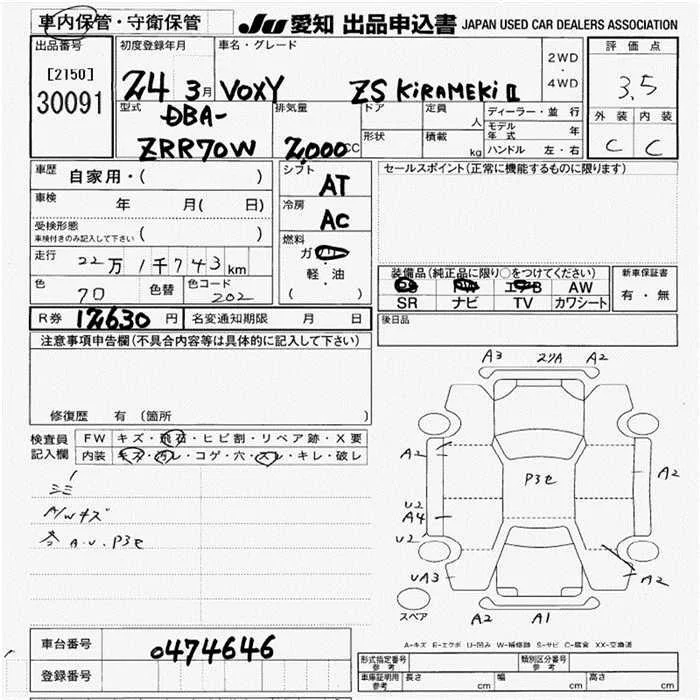 車内保管・守衛保管 JU 愛知 出品申込書 JAPAN USED CAR DEALERS ASSOCIATION
出品番号 初度登録年月 車名・グレード 評価点
[2150] 2WD
30091 24 3月 VOXY ZS KiRAMEKi II ・ 4WD 3.5
型式 排気量 ドア 定員 ディーラー・並行 外装 内装
DBA- 人 モデル年式 年
ZRR70W 2,000 CC 形状 積載 kg ハンドル 左・右 C C
車歴 自家用・( ) シフト AT セールスポイント(正常に機能するものに限ります)
車検 年 月( 日) 冷房 AC
受検形態
車検付きのみ記入して下さい ( )
走行 22万1千743km 燃料 ガ
軽・油 装備品(純正品に限り○をつけてください) 新車保証書
色 70 色替 色コード 202 ( ) AW 有・無
SR ナビ TV カワシート
R券 12630 円 名変通知期限 月 日 後日品
注意事項申告欄(不具合内容等は具体的に記入して下さい)
修復歴 有 (箇所
検査員 FW キズ・飛石・ヒビ割・リペア跡・X要
記入欄 内装 キズ・汚レ・コゲ・穴・スレ・キレ・破レ
A/Wキズ
A.U.P3セ
A3 スリA A2
A2 A2
P3セ
U2
A4
U2
UA3 A2
スペア
A2 A1
A-キズ E-エクボ U-凹み W-補修跡 S-サビ C-腐食 XX-交換済
車台番号 0474646
登録番号
形式指定番号 参考 類別区分番号 参考
車庫証明用 参考 長さ cm 幅 cm 高さ cm